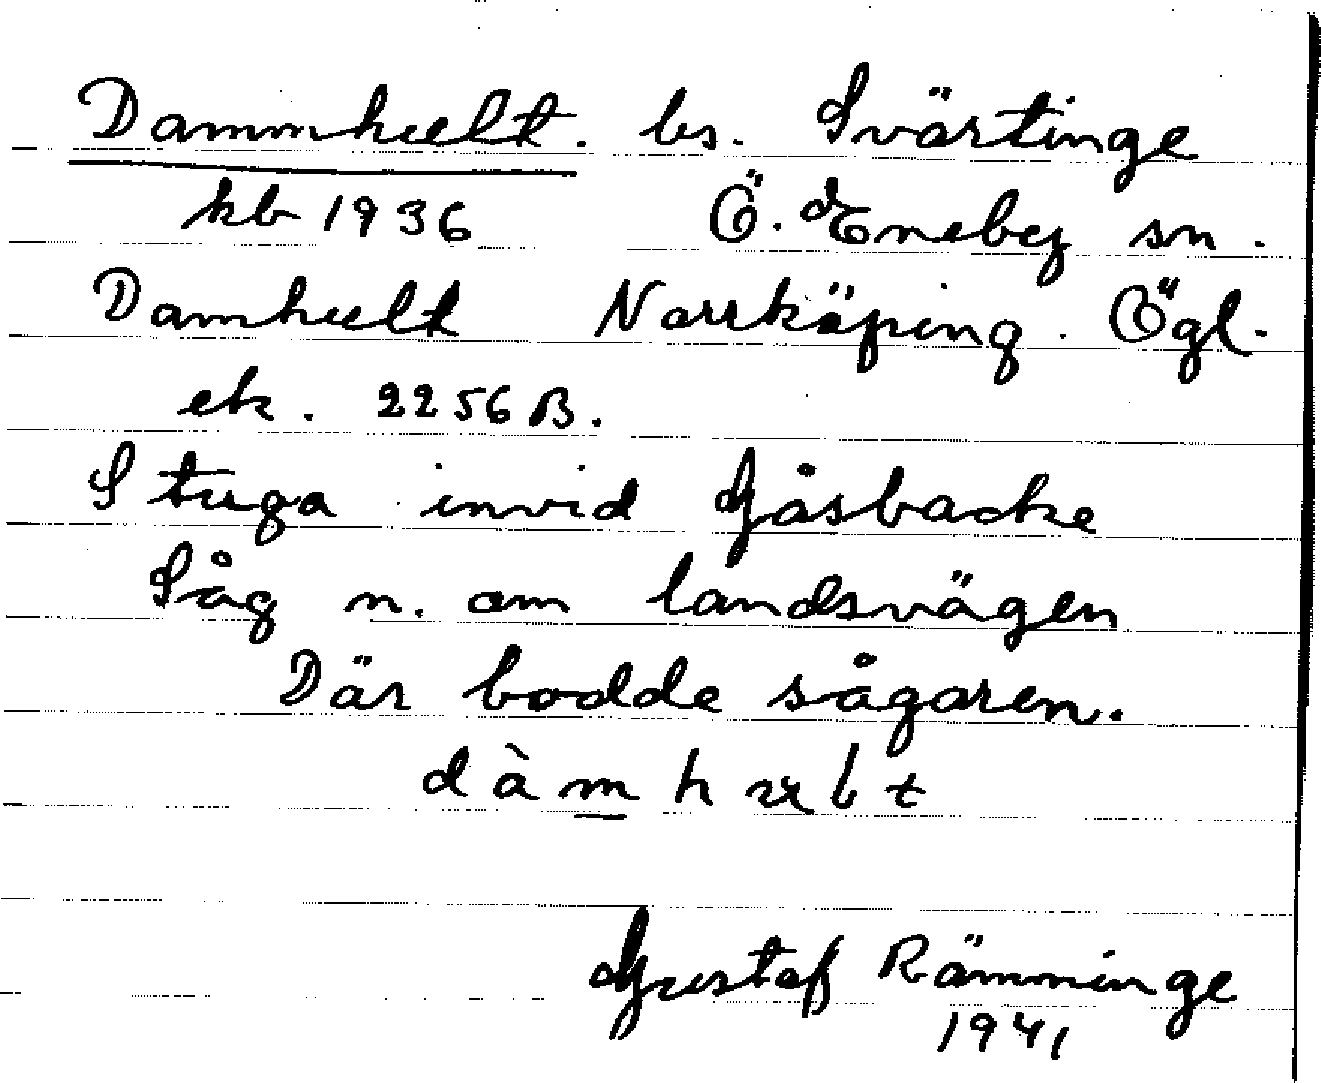 Dammhult. bs. Svärtinge
kb 1936 Ö. Eneby sn.
Damhult Norrköping. Ögl.
ek. 2256 B.
Stuga invid Gåsbacke
Såg n. om landsvägen
Där bodde sågaren.
dàm h
Gustaf Rämminge
1941